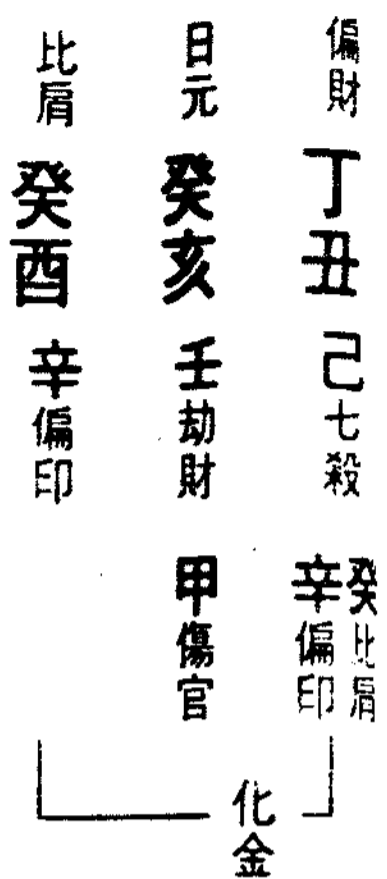 偏財
丁丑
己七殺
癸比肩
辛偏印
日元
癸亥
壬劫財
甲傷官
比肩
癸酉
辛偏印
化金